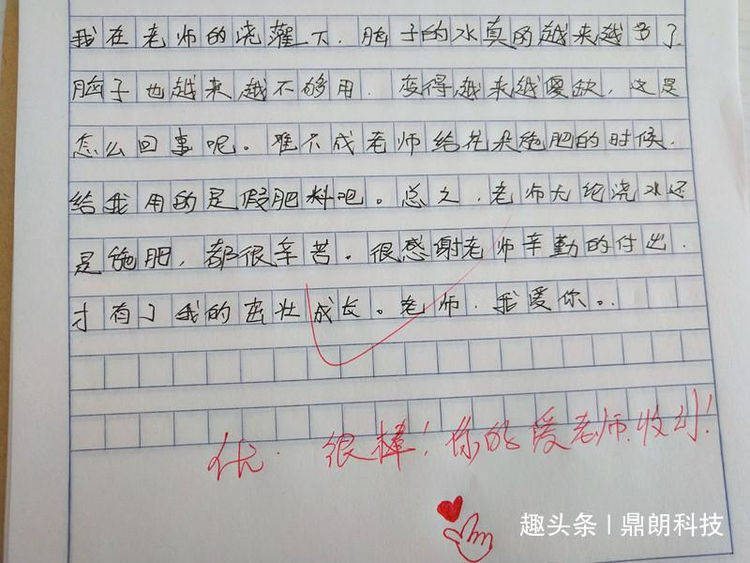 我在老师的浇灌下，脑子的水真的越来越多了
脑子也越来越不够用，变得越来越傻缺，这是
怎么回事呢。难不成老师给花朵施肥的时候，
给我用的是假肥料吧。总之，老师无论浇水还
是施肥，都很辛苦。很感谢老师辛勤的付出，
才有了我的茁壮成长。老师，我爱你。
优 很棒！你的爱老师收到！
趣头条 | 鼎朗科技